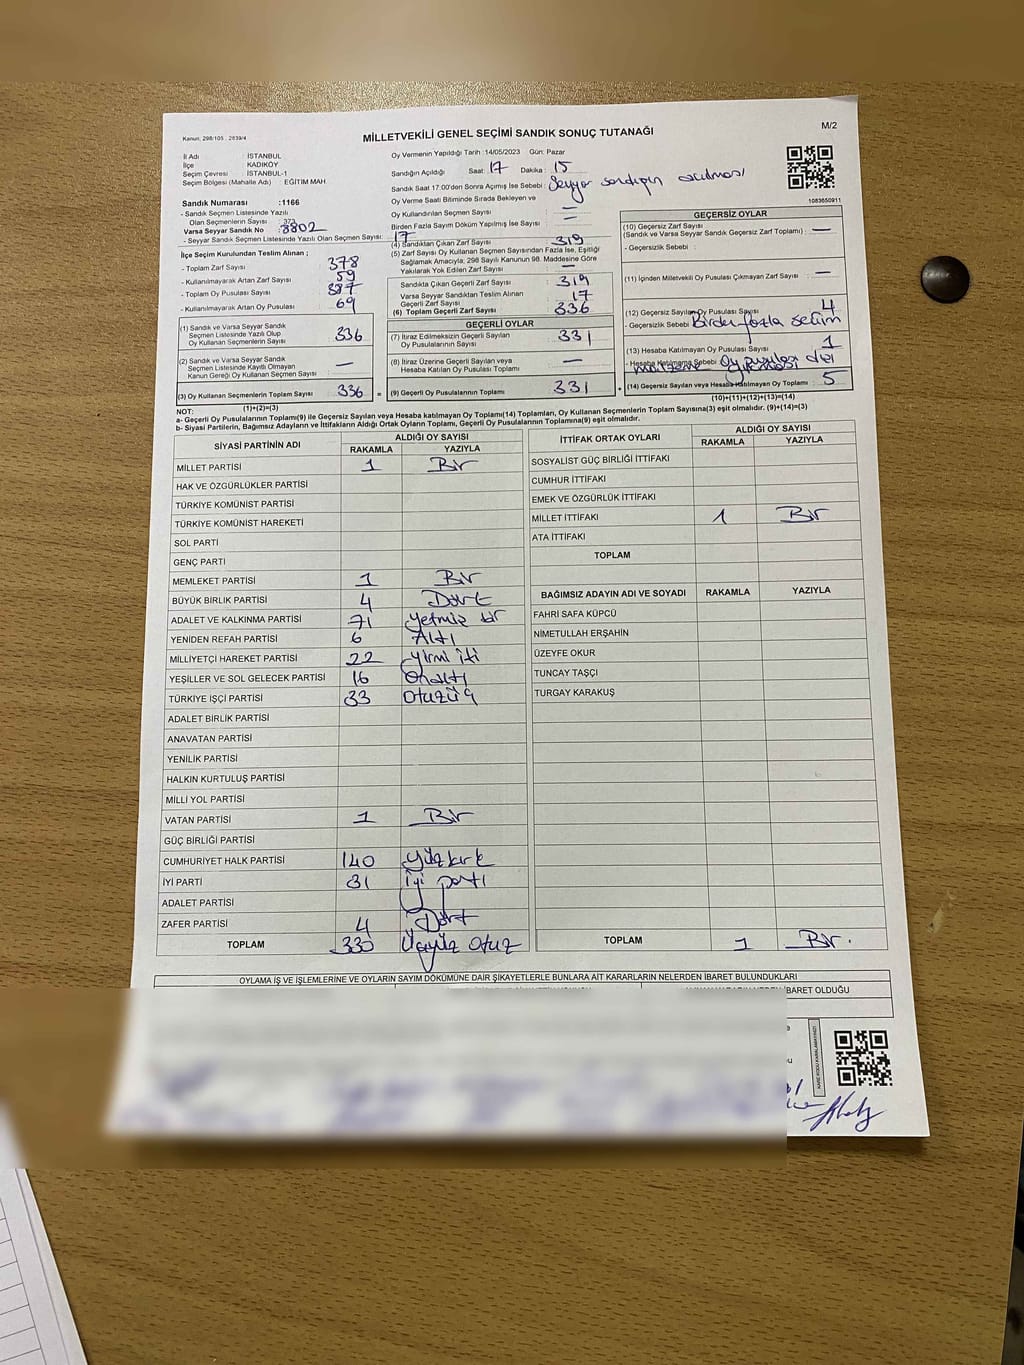 Kanun: 298/105 , 2839/4
MİLLETVEKİLİ GENEL SEÇİMİ SANDIK SONUÇ TUTANAĞI
M/2
İl Adı : İSTANBUL
İlçe : KADIKÖY
Seçim Çevresi : İSTANBUL-1
Seçim Bölgesi (Mahalle Adı) : EĞİTİM MAH
Sandık Numarası :1166
- Sandık Seçmen Listesinde Yazılı
Olan Seçmenlerin Sayısı : 373
Varsa Seyyar Sandık No : 8802
- Seyyar Seçmen Sandık Listesinde Yazılı Olan Seçmen Sayısı: 17
İlçe Seçim Kurulundan Teslim Alınan ;
- Toplam Zarf Sayısı 378
- Kullanılmayarak Artan Zarf Sayısı 59
- Toplam Oy Pusulası Sayısı
- Kullanılmayarak Artan Oy Pusulası 69
(1) Sandık ve Varsa Seyyar Sandık
Seçmen Listesinde Yazılı Olup
Oy Kullanan Seçmenlerin Sayısı 336
(2) Sandık ve Varsa Seyyar Sandık
Seçmen Listesinde Kayıtlı Olmayan
Kanun Gereği Oy Kullanan Seçmen Sayısı : —
(3) Oy Kullanan Seçmenlerin Toplam Sayısı 336 =
(1)+(2)=(3)
Oy Vermenin Yapıldığı Tarih :14/05/2023 Gün: Pazar
Sandığın Açıldığı Saat: 17 Dakika : 15
Sandık Saat 17:00'den Sonra Açımış İse Sebebi : Seyyar sandığın açılması
Oy Verme Saati Bitiminde Sırada Bekleyen ve
Oy Kullandırılan Seçmen Sayısı : —
Birden Fazla Sayım Döküm Yapılmış İse Sayısı : —
(4) Sandıktan Çıkan Zarf Sayısı 319
(5) Zarf Sayısı Oy Kullanan Seçmen Sayısından Fazla İse, Eşitliği
Sağlamak Amacıyla; 298 Sayılı Kanunun 98. Maddesine Göre
Yakılarak Yok Edilen Zarf Sayısı : —
Sandıkta Çıkan Geçerli Zarf Sayısı : 319
Varsa Seyyar Sandıktan Teslim Alınan
Geçerli Zarf Sayısı : 17
(6) Toplam Geçerli Zarf Sayısı : 336
GEÇERLİ OYLAR
(7) İtiraz Edilmeksizin Geçerli Sayılan
Oy Pusulalarının Sayısı : 331
(8) İtiraz Üzerine Geçerli Sayılan veya
Hesaba Katılan Oy Pusulaları Toplamı : —
(9) Geçerli Oy Pusulalarının Toplamı 331 +
1083650911
GEÇERSİZ OYLAR
(10) Geçersiz Zarf Sayısı
(Sandık ve Varsa Seyyar Sandık Geçersiz Zarf Toplamı) : —
- Geçersizlik Sebebi :
(11) İçinden Milletvekili Oy Pusulası Çıkmayan Zarf Sayısı : —
(12) Geçersiz Sayılan Oy Pusulası Sayısı : 4
- Geçersizlik Sebebi Birden fazla seçim
(13) Hesaba Katılmayan Oy Pusulası Sayısı 1
- Hesaba Katılmama Sebebi : Oy pusulası
(14) Geçersiz Sayılan veya Hesaba Katılmayan Oy Toplamı : 5
(10)+(11)+(12)+(13)=(14)
NOT:
a- Geçerli Oy Pusulalarının Toplamı(9) ile Geçersiz Sayılan veya Hesaba katılmayan Oy Toplamı(14) Toplamları, Oy Kullanan Seçmenlerin Toplam Sayısına(3) eşit olmalıdır. (9)+(14)=(3)
b- Siyasi Partilerin, Bağımsız Adayların ve İttifakların Aldığı Ortak Oyların Toplamı, Geçerli Oy Pusulalarının Toplamına(9) eşit olmalıdır.
SİYASİ PARTİNİN ADI ALDIĞI OY SAYISI
RAKAMLA YAZIYLA
MİLLET PARTİSİ 1 Bir
HAK VE ÖZGÜRLÜKLER PARTİSİ
TÜRKİYE KOMÜNİST PARTİSİ
TÜRKİYE KOMÜNİST HAREKETİ
SOL PARTİ
GENÇ PARTİ
MEMLEKET PARTİSİ 1 Bir
BÜYÜK BİRLİK PARTİSİ 4 Dört
ADALET VE KALKINMA PARTİSİ 71 yetmiş bir
YENİDEN REFAH PARTİSİ 6 Altı
MİLLİYETÇİ HAREKET PARTİSİ 22 yirmi iki
YEŞİLLER VE SOL GELECEK PARTİSİ 16 Onaltı
TÜRKİYE İŞÇİ PARTİSİ 33 otuzüç
ADALET BİRLİK PARTİSİ
ANAVATAN PARTİSİ
YENİLİK PARTİSİ
HALKIN KURTULUŞ PARTİSİ
MİLLİ YOL PARTİSİ
VATAN PARTİSİ 1 Bir
GÜÇ BİRLİĞİ PARTİSİ
CUMHURİYET HALK PARTİSİ 140 yüzkırk
İYİ PARTİ 31 İyi parti
ADALET PARTİSİ
ZAFER PARTİSİ 4 Dört
TOPLAM 330 Üçyüz otuz
İTTİFAK ORTAK OYLARI ALDIĞI OY SAYISI
RAKAMLA YAZIYLA
SOSYALİST GÜÇ BİRLİĞİ İTTİFAKI
CUMHUR İTTİFAKI
EMEK VE ÖZGÜRLÜK İTTİFAKI
MİLLET İTTİFAKI 1 Bir
ATA İTTİFAKI
TOPLAM
BAĞIMSIZ ADAYIN ADI VE SOYADI RAKAMLA YAZIYLA
FAHRİ SAFA KÜPCÜ
NİMETULLAH ERŞAHİN
ÜZEYFE OKUR
TUNCAY TAŞÇI
TURGAY KARAKUŞ
TOPLAM 1 Bir.
OYLAMA İŞ VE İŞLEMLERİNE VE OYLARIN SAYIM DÖKÜMÜNE DAİR ŞİKAYETLERLE BUNLARA AİT KARARLARIN NELERDEN İBARET BULUNDUKLARI
İBARET OLDUĞU